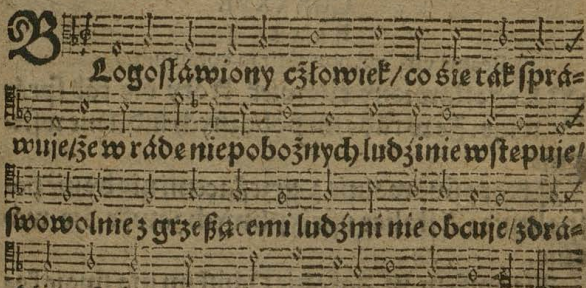 BLogosłáwiony cżłowiek/ co śie ták spra-
wuje/że w rádę niepobożnych ludźi nie wstępuje/
swowolnie z grzeßącemi ludźmi nie obcuje/ zdrá-